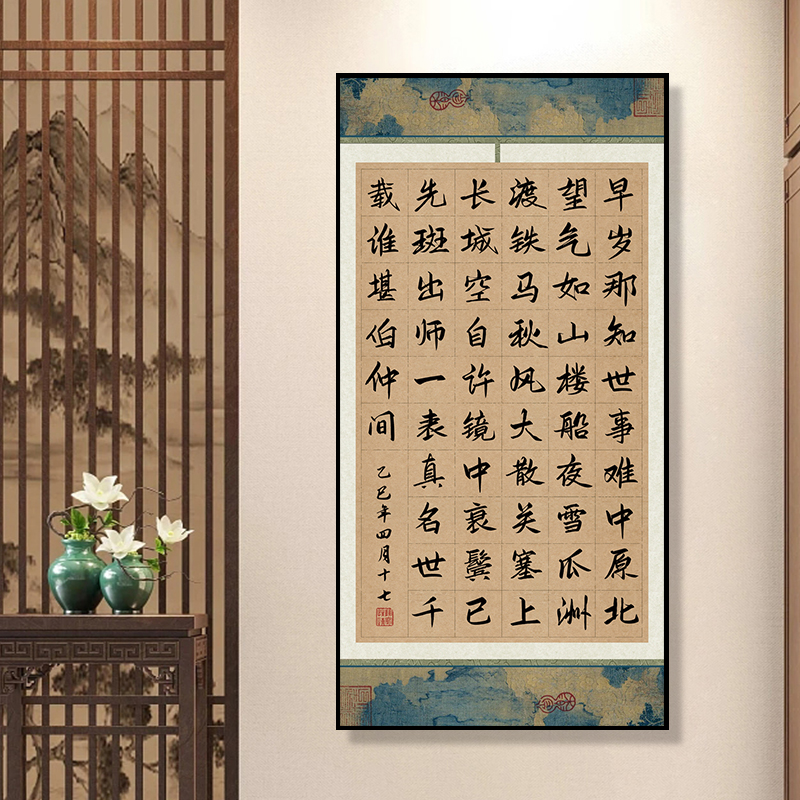 早岁那知世事难中原北
望气如山楼船夜雪瓜洲
渡铁马秋风大散关塞上
长城空自许镜中衰鬓已
先斑出师一表真名世千
载谁堪伯仲间
乙巳年四月十七